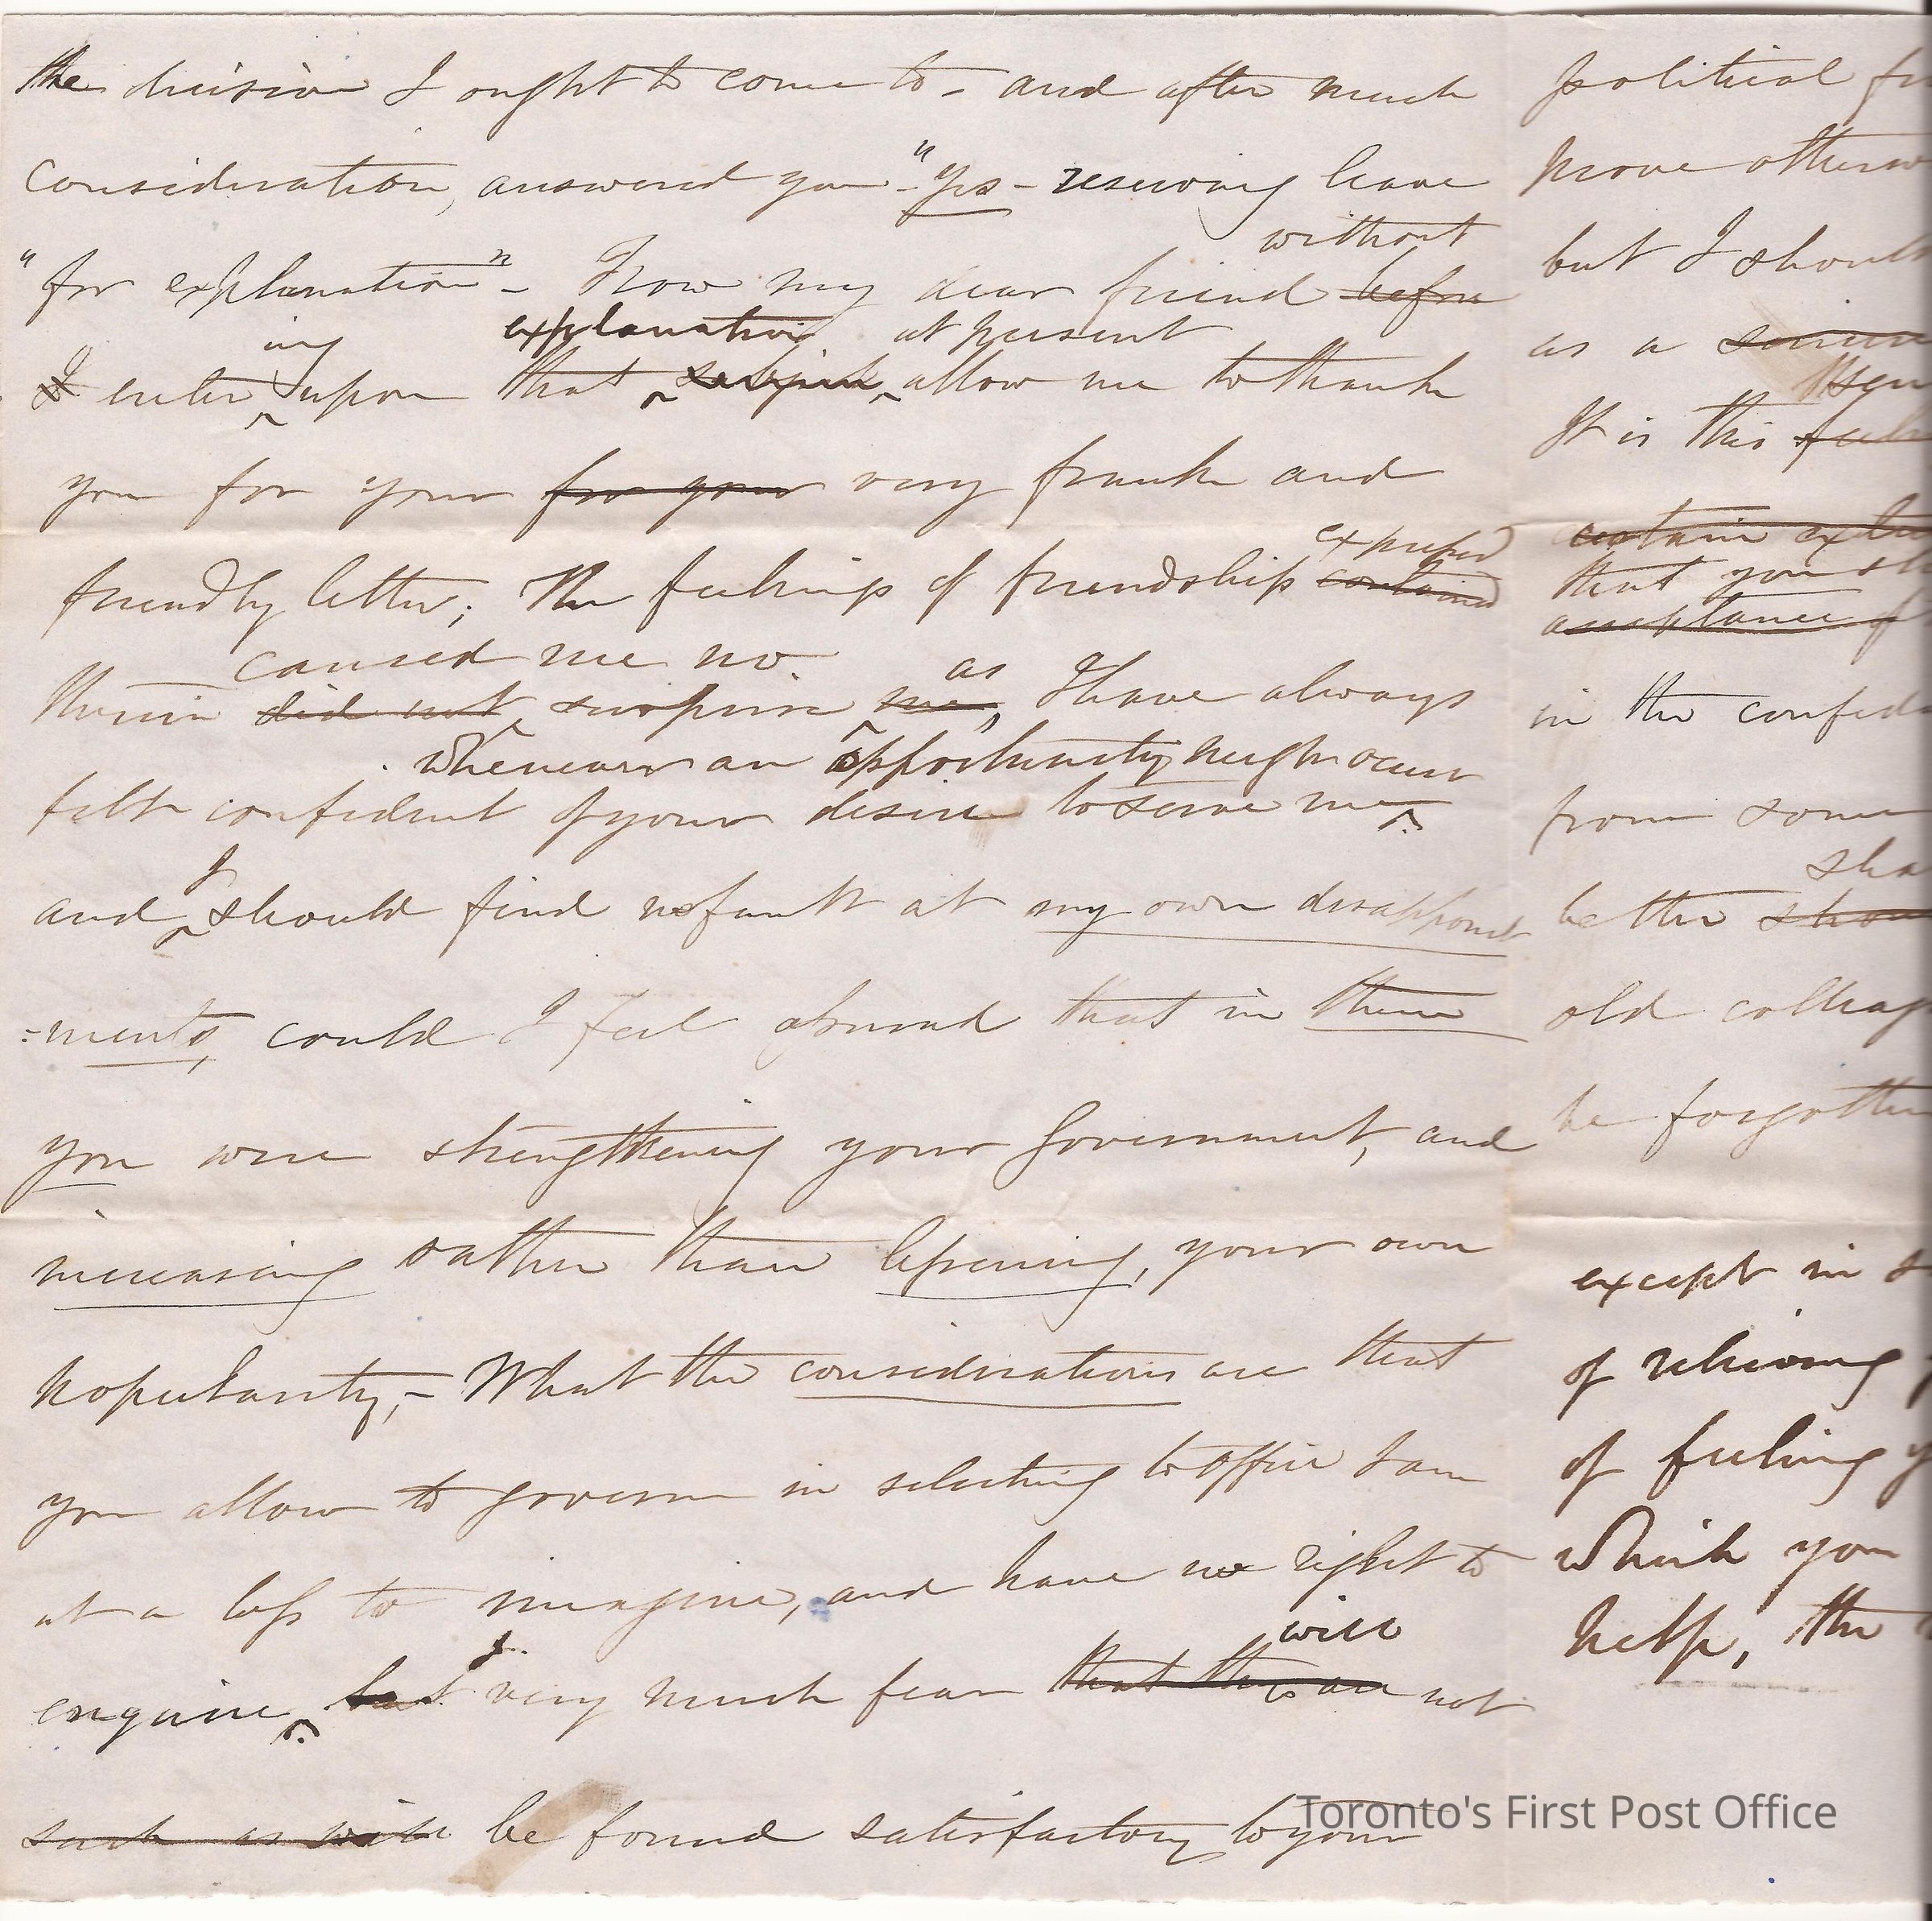 the decision I ought to come to - and after much
consideration, answered you - "Yes - reserving leave
without
"for explanation" - Now my dear friend before
ing explanation at present
I enter upon that subject, allow me to thank
you for your for your very frank and
friendly letter; The feelings of friendship contained
expressed
caused me no as
therein did not surprise me, I have always
whenever an opportunity might occur
felt confident of your desire to serve me
I
and should find no fault at my own disappoint
=ments, could I feel assured that in them
you were strengthening your Government, and
increasing rather than lessening, your own
popularity, - What the considerations are that
you allow to govern in selecting to office I am
at a loss to imagine, and have no right to
I will
enquire, but very much fear that they are not
such as will be found satisfactory to your
political
prove
but I should
as a
It is this
certain
that you
acceptance of
in the
from some
better
old
be
except in
of relieving
of feeling
which you
help, the
Toronto's First Post Office